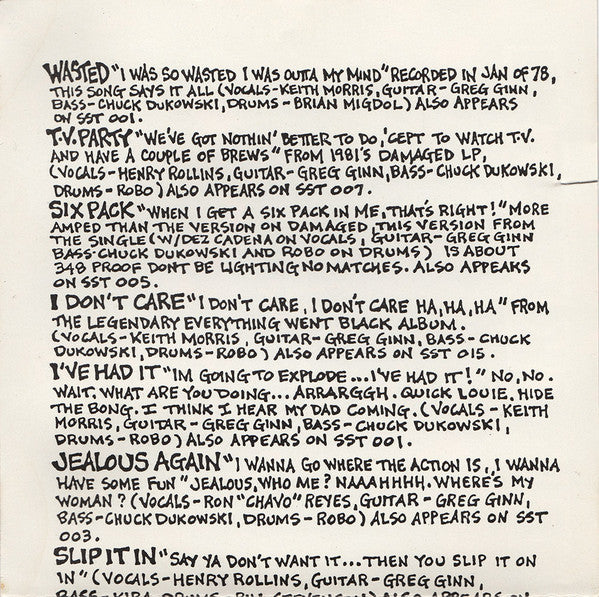 WASTED "I WAS SO WASTED I WAS OUTTA MY MIND" RECORDED IN JAN OF 78,
THIS SONG SAYS IT ALL (VOCALS-KEITH MORRIS, GUITAR-GREG GINN,
BASS-CHUCK DUKOWSKI, DRUMS-BRIAN MIGDOL) ALSO APPEARS
ON SST 001.
T.V. PARTY "WE'VE GOT NOTHIN' BETTER TO DO, 'CEPT TO WATCH T.V.
AND HAVE A COUPLE OF BREWS" FROM 1981'S DAMAGED LP,
(VOCALS-HENRY ROLLINS, GUITAR-GREG GINN, BASS-CHUCK DUKOWSKI,
DRUMS-ROBO) ALSO APPEARS ON SST 007.
SIX PACK "WHEN I GET A SIX PACK IN ME, THAT'S RIGHT!" MORE
AMPED THAN THE VERSION ON DAMAGED, THIS VERSION FROM
THE SINGLE (W/DEZ CADENA ON VOCALS, GUITAR-GREG GINN
BASS-CHUCK DUKOWSKI AND ROBO ON DRUMS) IS ABOUT
348 PROOF DONT BE LIGHTING NO MATCHES. ALSO APPEARS
ON SST 005.
I DON'T CARE "I DON'T CARE, I DON'T CARE HA, HA, HA" FROM
THE LEGENDARY EVERYTHING WENT BLACK ALBUM.
(VOCALS-KEITH MORRIS, GUITAR-GREG GINN, BASS-CHUCK
DUKOWSKI, DRUMS-ROBO) ALSO APPEARS ON SST 015.
I'VE HAD IT "IM GOING TO EXPLODE...I'VE HAD IT!" NO, NO.
WAIT. WHAT ARE YOU DOING... ARRARGGH. QUICK LOUIE. HIDE
THE BONG. I THINK I HEAR MY DAD COMING. (VOCALS-KEITH
MORRIS, GUITAR-GREG GINN, BASS-CHUCK DUKOWSKI,
DRUMS-ROBO) ALSO APPEARS ON SST 001.
JEALOUS AGAIN "I WANNA GO WHERE THE ACTION IS, I WANNA
HAVE SOME FUN" JEALOUS, WHO ME? NAAAHHHH. WHERE'S MY
WOMAN? (VOCALS-RON "CHAVO" REYES, GUITAR-GREG GINN,
BASS-CHUCK DUKOWSKI, DRUMS-ROBO) ALSO APPEARS ON SST
003.
SLIP IT IN "SAY YA DON'T WANT IT...THEN YOU SLIP IT ON
IN" (VOCALS-HENRY ROLLINS, GUITAR-GREG GINN,